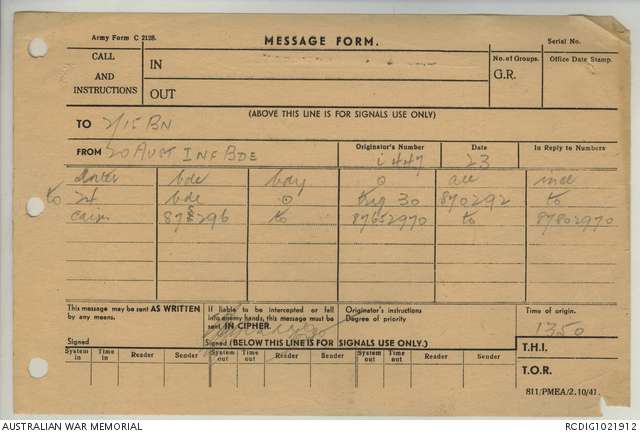 Army Form C 2128.
MESSAGE FORM.
Serial No.
CALL AND INSTRUCTIONS
IN
OUT
No. of Groups.
G.R.
Office Date Stamp.
(ABOVE THIS LINE IS FOR SIGNALS USE ONLY)
TO 2/15 BN
FROM 20 AUST INF BDE
Originator's Number
i 447
Date
23
In Reply to Numbers
bde bdy o
to 24 bde o Trig 30 870292 to
to 87652970 to 87802970
This message may be sent AS WRITTEN by any means.
If liable to be intercepted or fall into enemy hands, this message must be sent IN CIPHER.
Originator's instructions
Degree of priority
Time of origin.
1350
Signed
Signed
(BELOW THIS LINE IS FOR SIGNALS USE ONLY.)
T.H.I.
System in Time in Reader Sender System out Time out Reader Sender System out Time out Reader Sender
T.O.R.
811/PMEA/2.10/41.
AUSTRALIAN WAR MEMORIAL
RCDIG1021912